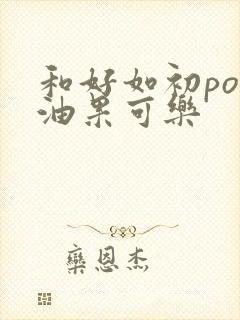 和好如初po
油果可樂
欒恩杰